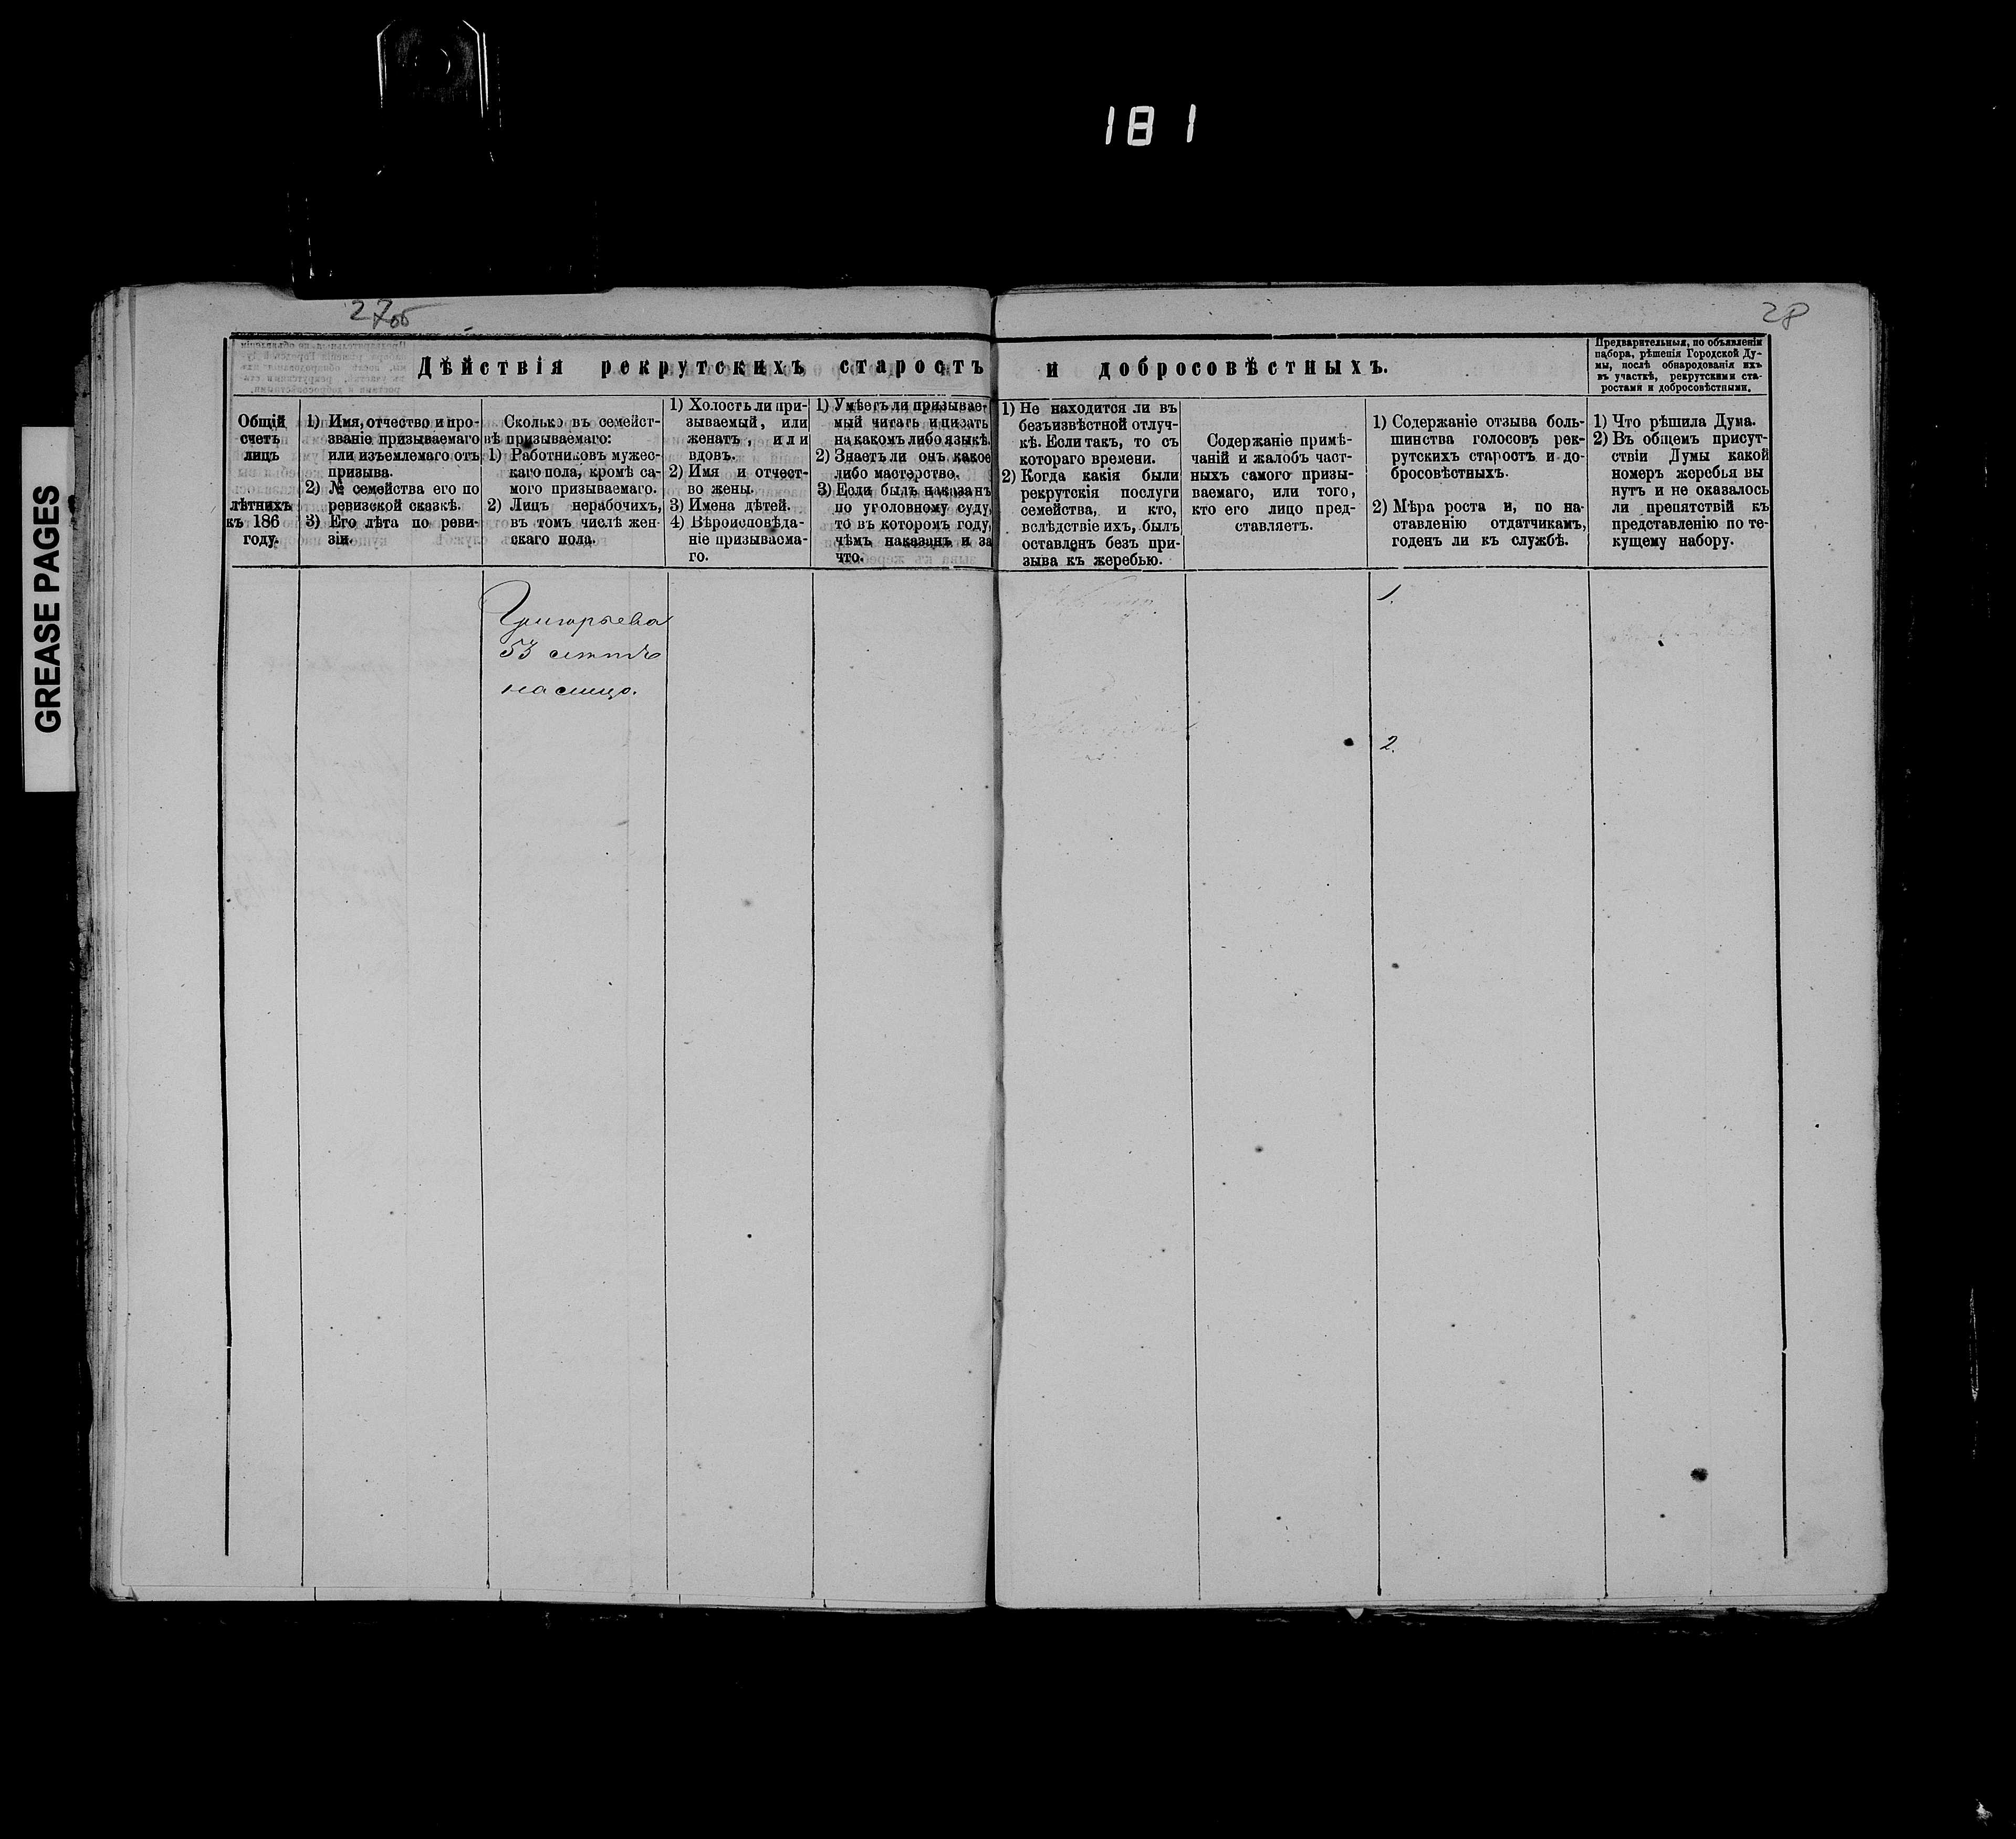 181
GREASE PAGES
27об
28
Дѣйствія рекрутскихъ старостъ и добросовѣстныхъ.
Предварительныя, по объявленіи
набора, рѣшенія Городской Ду-
мы, послѣ обнародованія ихъ
въ участкѣ, рекрутскими ста-
ростами и добросовѣстными.
Общій
счетъ
лицъ
лѣтнихъ
къ 186
году.
1) Имя, отчество и про-
званіе призываемаго
или изъемлемаго отъ
призыва.
2) № семейства его по
ревизской сказкѣ.
3) Его лѣта по реви-
зіи.
Сколько въ семейст-
вѣ призываемаго:
1) Работниковъ мужес-
каго пола, кромѣ са-
мого призываемаго.
2) Лицъ нерабочихъ,
въ томъ числѣ жен-
скаго пола.
1) Холостъ ли при-
зываемый, или
женатъ, или
вдовъ.
2) Имя и отчест-
во жены.
3) Имена дѣтей.
4) Вѣроисповѣда-
ніе призываема-
го.
1) Умѣетъ ли призывае-
мый читать и писать
на какомъ либо языкѣ.
2) Знаетъ ли онъ какое
либо мастерство.
3) Если былъ наказанъ
по уголовному суду,
то въ которомъ году,
чѣмъ наказанъ и за
что.
1) Не находится ли въ
безъизвѣстной отлуч-
кѣ. Если такъ, то съ
котораго времени.
2) Когда какія были
рекрутскія послуги
семейства, и кто,
вслѣдствіе ихъ, былъ
оставленъ безъ при-
зыва къ жеребью.
Содержаніе примѣ-
чаній и жалобъ част-
ныхъ самого призы-
ваемаго, или того,
кто его лицо пред-
ставляетъ.
1) Содержаніе отзыва боль-
шинства голосовъ рек-
рутскихъ старостъ и до-
бросовѣстныхъ.
2) Мѣра роста и, по на-
ставленію отдатчикамъ,
годенъ ли къ службѣ.
1) Что рѣшила Дума.
2) Въ общемъ присут-
ствіи Думы какой
номеръ жеребья вы
нутъ и не оказалось
ли препятствій къ
представленію по те-
кущему набору.
Григорьева
53 лѣтъ
на лицо.
1.
2.